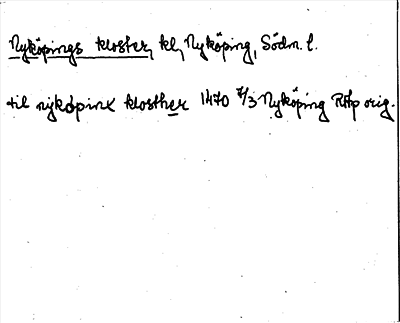 Nyköpings kloster, kl, Nyköping, Södm. l.
til nykøpinx klosther 1470 7/3 Nyköping RAp orig.